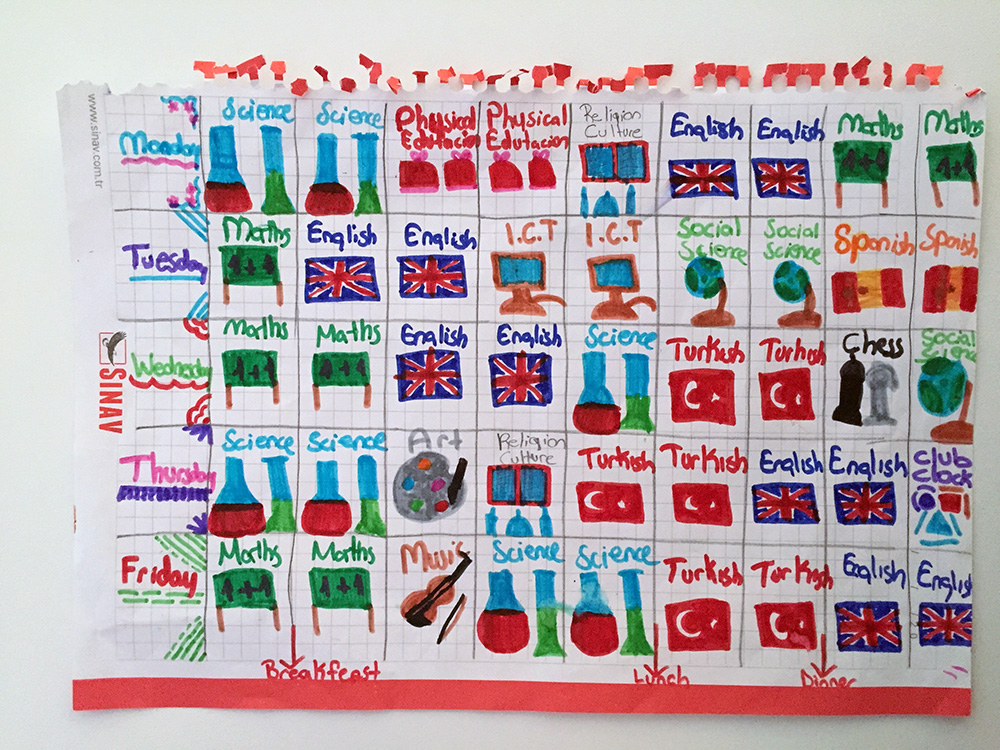 www.sinav.com.tr
SINAV
Monday
Science
Science
Physical
Edutacion
Physical
Edutacion
Religion
Culture
English
English
Maths
1+1
Maths
1+1
Tuesday
Maths
1+1
English
English
I.C.T
I.C.T
Social
Science
Social
Science
Spanish
Spanish
Wednesday
Maths
1+1
Maths
1+1
English
English
Science
Turkish
Turkish
Chess
Social
Science
Thursday
Science
Science
Art
Religion
Culture
Turkish
Turkish
English
English
Club
Clock
Friday
Maths
1+1
Maths
1+1
Science
Science
Turkish
Turkish
English
English
Breakfeast
Lunch
Dinner